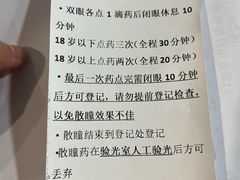 • 双眼各点 1 滴药后闭眼休息 10
分钟
18 岁以下点药三次（全程 30 分钟）
18 岁以上点药两次（全程 20 分钟）
• 最后一次药点完需闭眼 10 分钟
后方可登记，请勿提前登记检查，
以免散瞳效果不佳
• 散瞳结束到登记处登记
• 散瞳药在验光室人工验光后方可
丢弃